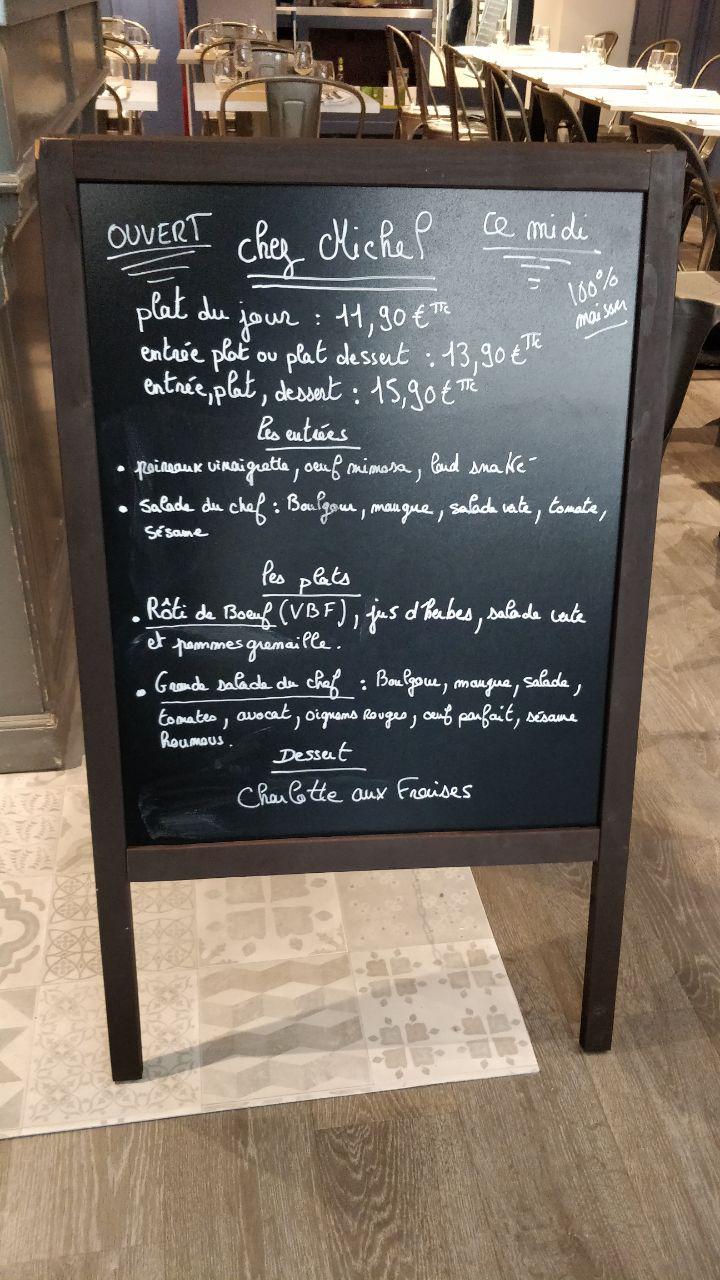 OUVERT chez Michel ce midi
100% maison
plat du jour : 11,90 € TTC
entrée plat ou plat dessert : 13,90 € TTC
entrée, plat, dessert : 15,90 € TTC
les entrées
• poireaux vinaigrette, oeuf mimosa, lard
• salade du chef : Boulgour, mangue, salade verte, tomate,
sésame
les plats
• Rôti de Boeuf (VBF), jus d'herbes, salade verte
et pommes grenaille.
• Grande salade du chef : Boulgour, mangue, salade,
tomates, avocat, oignons rouges, oeuf parfait, sésame
houmous.
Dessert
Charlotte aux Fraises